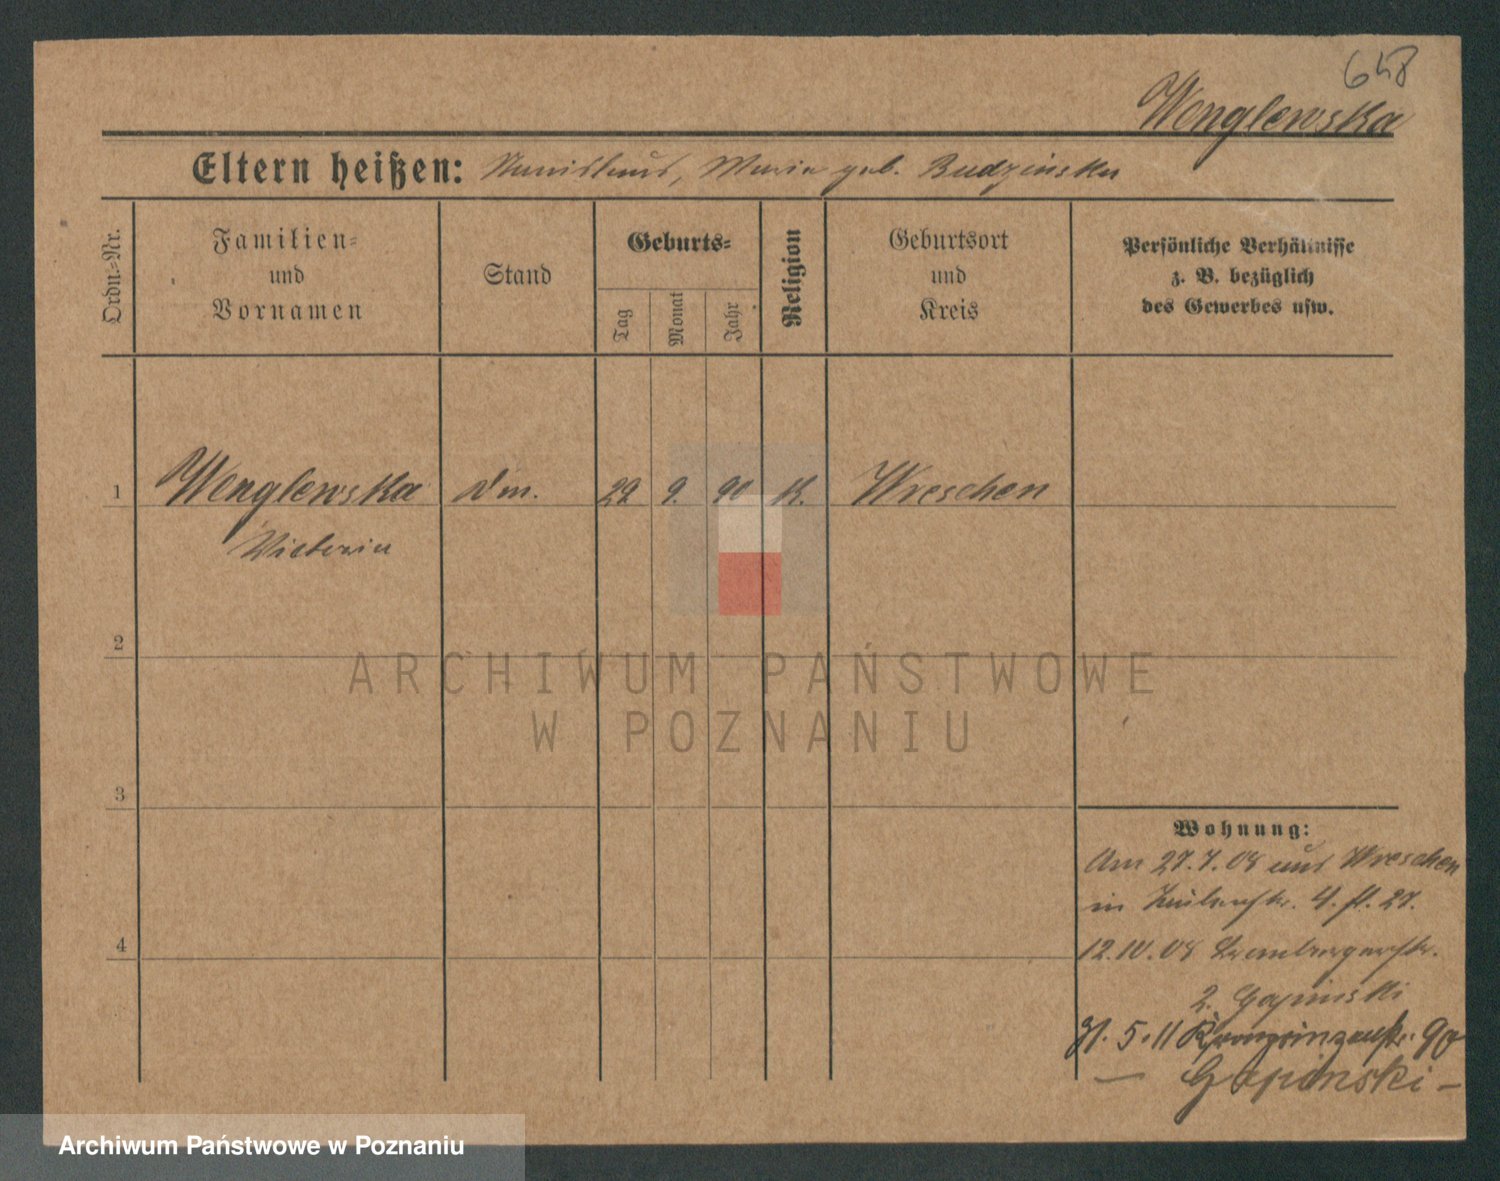 648
Wenglewska
Eltern heißen: Stanislaus, Maria geb. Budzinska
Ordn.=Nr.
Familien=
und
Vornamen
Stand
Geburts=
Tag
Monat
Jahr
Religion
Geburtsort
und
Kreis
Persönliche Verhältnisse
z. B. bezüglich
des Gewerbes usw.
1 Wenglewska Dm. 29. 9. 90 K. Wreschen
Victoria
2
ARCHIWUM PAŃSTWOWE
W POZNANIU
3
Wohnung:
Am 27.7.08 aus Wreschen
in 4. 27.
4
12.10.08
2. Gapinski
31.5.11 Kronprinzenstr. 90
— Gapinski —
Archiwum Państwowe w Poznaniu